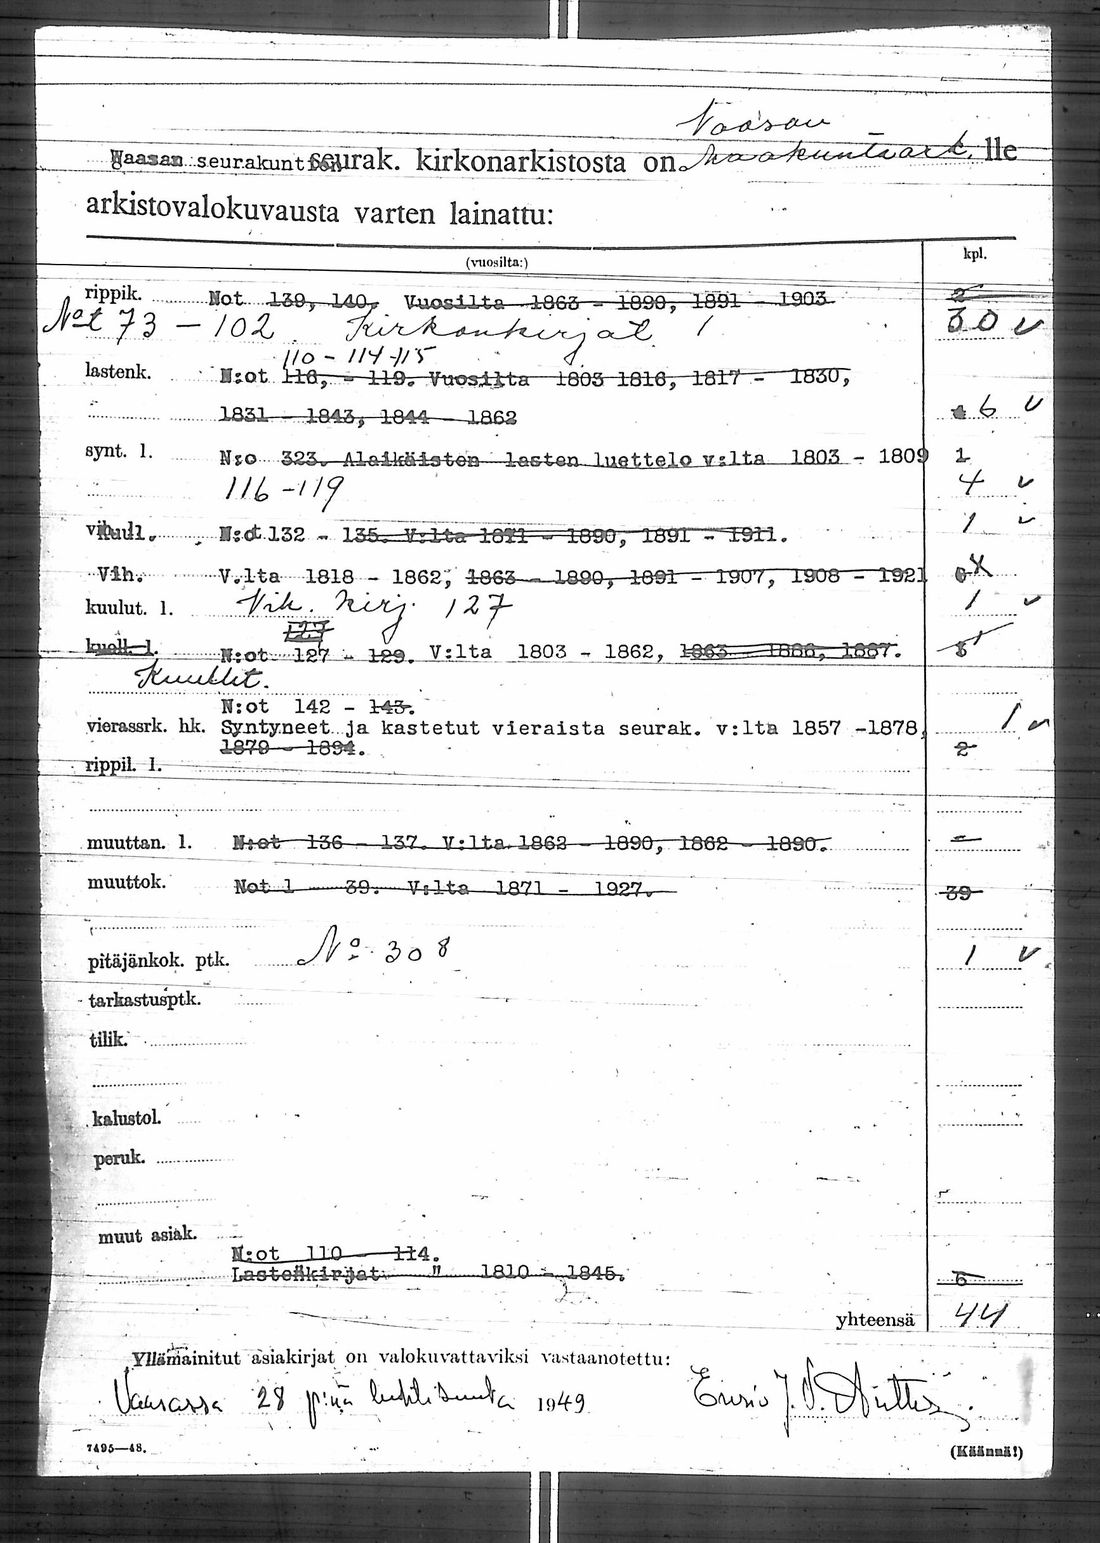 Vaasan
Vaasan seurakuntien seurak. kirkonarkistosta on maakuntaark. lle
arkistovalokuvausta varten lainattu:
(vuosilta:) kpl.
rippik. Not 139, 140, Vuosilta 1863 - 1890, 1891 - 1903 2
Not 73 - 102 Kirkonkirjat 30 v
110 - 114-115
lastenk. N:ot 116, - 119. Vuosilta 1803 1816, 1817 - 1830,
1831 - 1843, 1844 - 1862 6 v
synt. l. N:o 323. Alaikäisten lasten luettelo v:lta 1803 - 1809 1
116 - 119 4 v
N:ot 132 - 135. V:lta 1871 - 1890, 1891 - 1911. 1 v
Vih. V.lta 1818 - 1862, 1863 - 1890, 1891 - 1907, 1908 - 1921
kuulut. l. Vih. kirj. 127 1 v
127
kuoll. l. N:ot 127 - 129. V:lta 1803 - 1862, 1863 - 1886, 1887.
Kuullut.
N:ot 142 - 143.
vierassrk. hk. Syntyneet ja kastetut vieraista seurak. v:lta 1857 -1878, 1 v
1879 - 1894. 2
rippil. l.
muuttan. l. N:ot 136 - 137. V:lta 1862 - 1890, 1862 - 1890.
muuttok. Not 1 - 39. V:lta 1871 - 1927. 39
pitäjänkok. ptk. No 308 1 v
tarkastusptk.
tilik.
kalustol.
peruk.
muut asiak.
N:ot 110 - 114.
Lastenkirjat " 1810 - 1845. 5
yhteensä 44
Yllämainitut asiakirjat on valokuvattaviksi vastaanotettu:
Vaasassa 28 p:nä huhtikuuta 1949 Ensio J. V.
7495—48. (Käännä!)